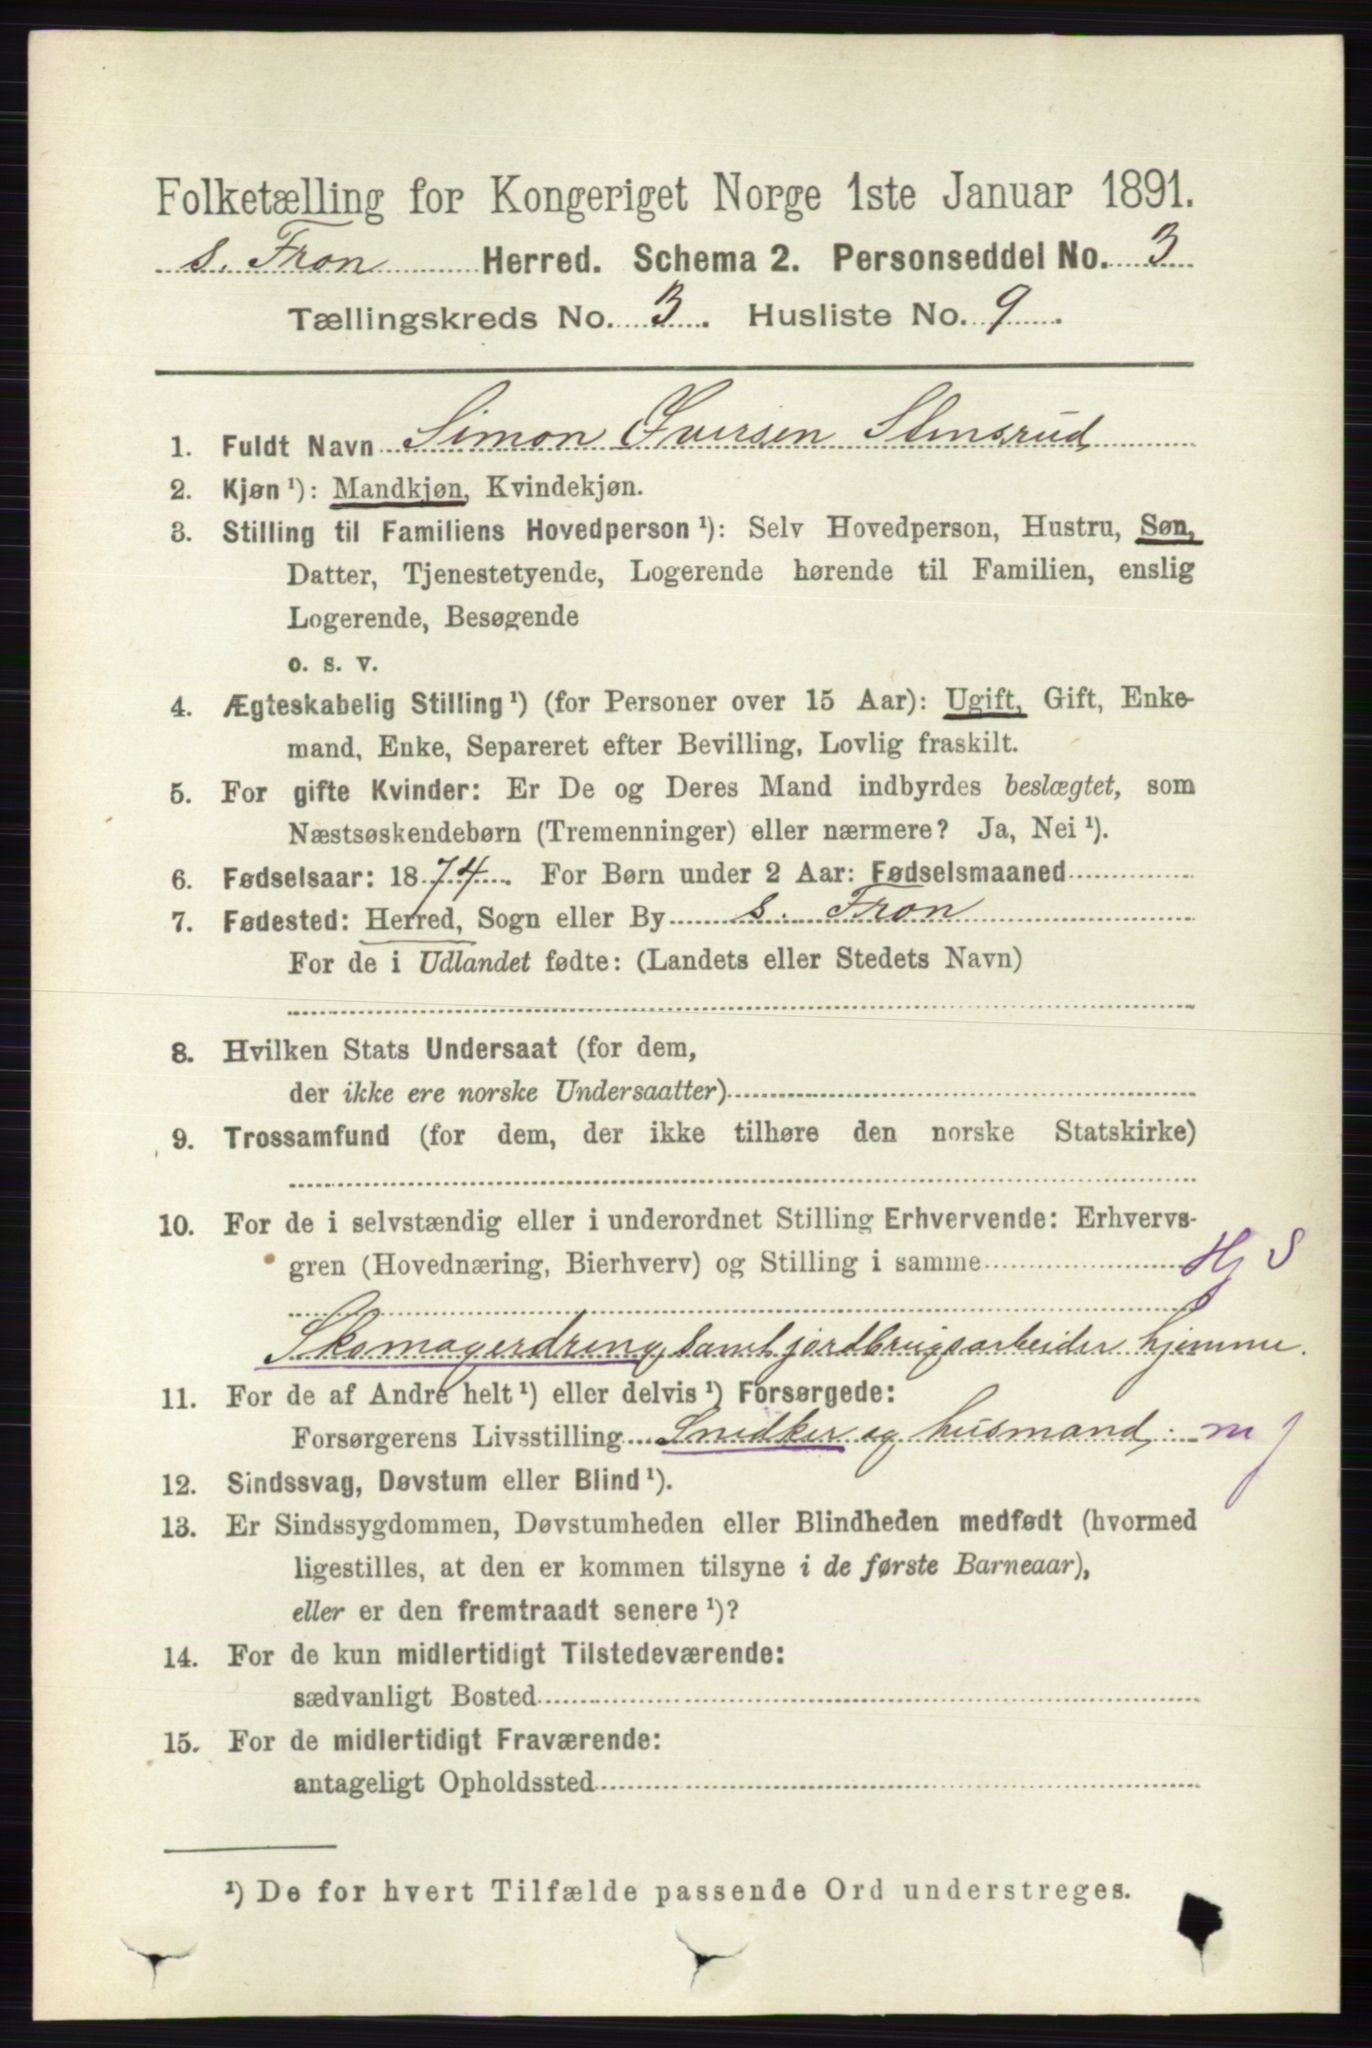 Folketælling for Kongeriget Norge 1ste Januar 1891.
s. Fron Herred. Schema 2. Personseddel No. 3
Tællingskreds No. 3. Husliste No. 9.
1. Fuldt Navn Simon Iversen Stensrud
2. Kjøn ¹): Mandkjøn, Kvindekjøn.
3. Stilling til Familiens Hovedperson ¹): Selv Hovedperson, Hustru, Søn,
Datter, Tjenestetyende, Logerende hørende til Familien, enslig
Logerende, Besøgende
o. s. v.
4. Ægteskabelig Stilling ¹) (for Personer over 15 Aar): Ugift, Gift, Enke-
mand, Enke, Separeret efter Bevilling, Lovlig fraskilt.
5. For gifte Kvinder: Er De og Deres Mand indbyrdes beslægtet, som
Næstsøskendebørn (Tremenninger) eller nærmere? Ja, Nei ¹).
6. Fødselsaar: 1874. For Børn under 2 Aar: Fødselsmaaned
7. Fødested: Herred, Sogn eller By s. Fron
For de i Udlandet fødte: (Landets eller Stedets Navn)
8. Hvilken Stats Undersaat (for dem,
der ikke ere norske Undersaatter)
9. Trossamfund (for dem, der ikke tilhøre den norske Statskirke)
10. For de i selvstændig eller i underordnet Stilling Erhvervende: Erhvervs-
gren (Hovednæring, Bierhverv) og Stilling i samme Hj S
Skomagerdreng, samt jordbrugsarbeider hjemme.
11. For de af Andre helt ¹) eller delvis ¹) Forsørgede:
Forsørgerens Livsstilling Snedker og husmand. m j
12. Sindssvag, Døvstum eller Blind ¹).
13. Er Sindssygdommen, Døvstumheden eller Blindheden medfødt (hvormed
ligestilles, at den er kommen tilsyne i de første Barneaar),
eller er den fremtraadt senere ¹)?
14. For de kun midlertidigt Tilstedeværende:
sædvanligt Bosted
15. For de midlertidigt Fraværende:
antageligt Opholdssted
¹) De for hvert Tilfælde passende Ord understreges.